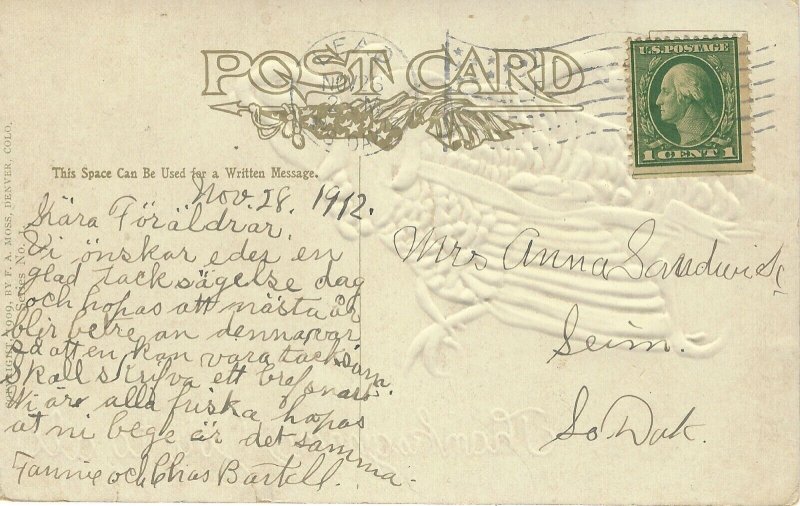 POST CARD
NOV 26
U.S. POSTAGE
1 CENT 1
This Space Can Be Used for a Written Message.
COPYRIGHT 1909, BY F. A. MOSS, DENVER, COLO.
Series No.
Nov. 28. 1912.
Kära Föräldrar,
Vi önskar eder en
glad tacksägelse dag
och hopas att nästa år
blir betre än denna var
så att en kan vara tacksam.
Skall skrifva ett bref snart
Vi äre alla friska hopas
at ni bege är det samma.
Fannie och Chas Bartell.
Mrs Anna Sandwick
Seim.
So Dak.
Thanksgiving